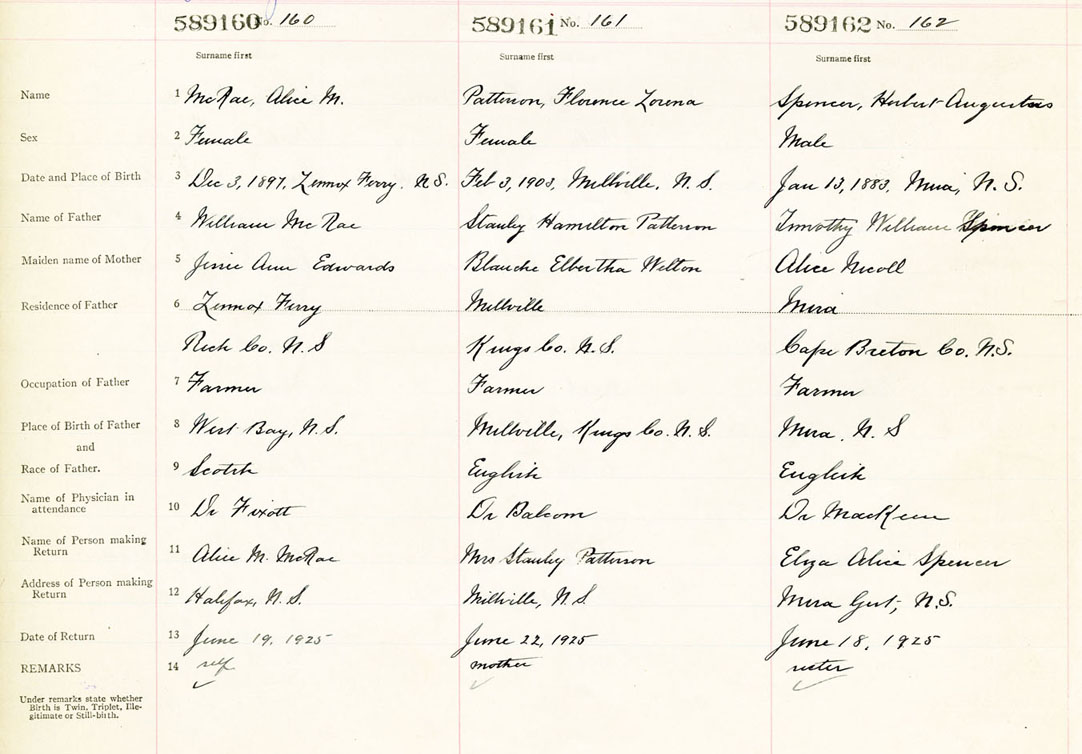 589160 No. 160 589161 No. 161 589162 No. 162
Surname first Surname first Surname first
Name 1 McRae, Alice M. Patterson, Florence Lorena Spencer, Herbert Augustus
Sex 2 Female Female Male
Date and Place of Birth 3 Dec 3, 1897, Lennox Ferry. N.S. Feb 3, 1903, Millville, N.S. Jan 13, 1883, Mira, N.S.
Name of Father 4 William McRae Stanley Hamilton Patterson Timothy William Spencer
Maiden name of Mother 5 Jessie Ann Edwards Blanche Elbertha Welton Alice Nicoll
Residence of Father 6 Lennox Ferry Millville Mira
Rich Co. N.S Kings Co. N.S. Cape Breton Co. N.S.
Occupation of Father 7 Farmer Farmer Farmer
Place of Birth of Father 8 West Bay, N.S. Millville, Kings Co. N.S. Mira, N.S
and
Race of Father. 9 Scotch English English
Name of Physician in
attendance 10 Dr Fixott Dr Balcom Dr MacKeen
Name of Person making
Return 11 Alice M. McRae Mrs Stanley Patterson Eliza Alice Spencer
Address of Person making
Return 12 Halifax, N.S. Millville, N.S. Mira Gut, N.S.
Date of Return 13 June 19, 1925 June 22, 1925 June 18, 1925
REMARKS 14 self mother sister
Under remarks state whether
Birth is Twin, Triplet, Ille-
gitimate or Still-birth.